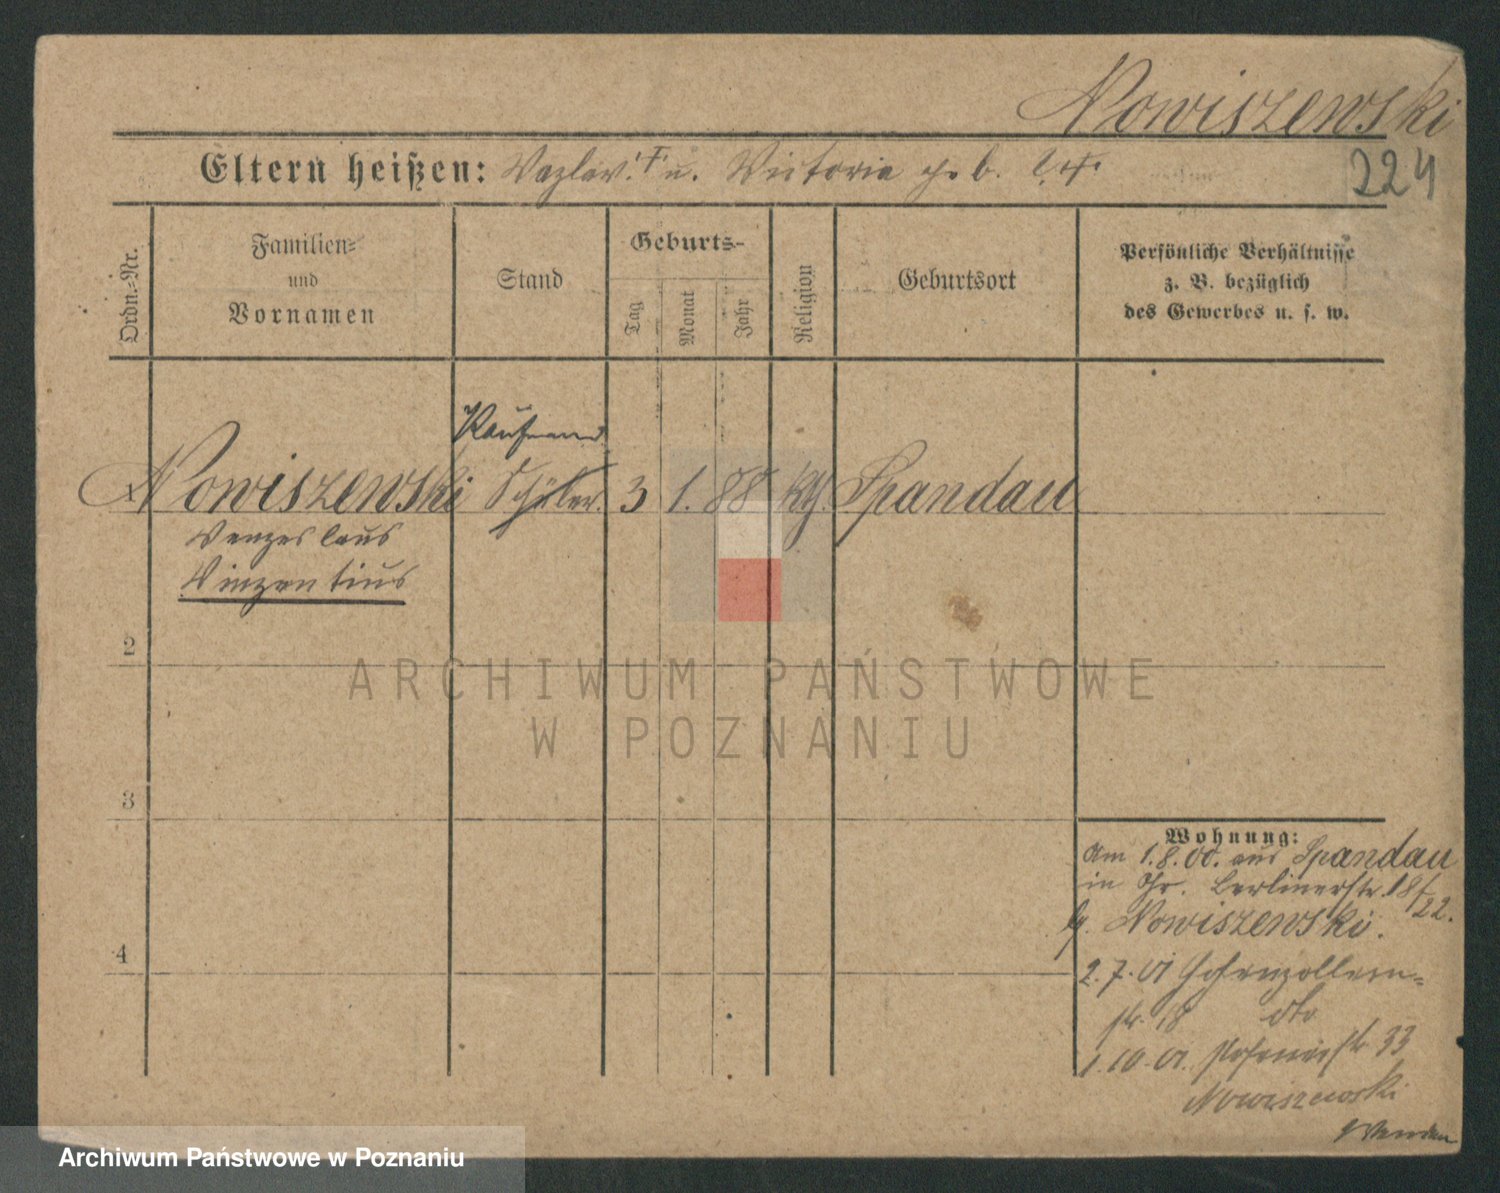 Nowiszewski
224
Eltern heißen: Wazlav † u. Victoria geb.
Ordn.-Nr.
Familien- und Vornamen
Stand
Geburts-
Tag
Monat
Jahr
Religion
Geburtsort
Persönliche Verhältnisse
z. B. bezüglich
des Gewerbes u. s. w.
Kaufmann
1 Nowiszewski Schüler 3 1. 88 kth. Spandau
Venzeslaus
Vinzentius
2
3
4
Wohnung:
Am 1.8.00. aus Spandau
in Gr. Berlinerstr. 18/22.
Nowiszewski.
2.7.01 Hohenzollern-
str. 18 dto
1.10.01. 33
Nowiszewski
Wenden
ARCHIWUM PAŃSTWOWE
W POZNANIU
Archiwum Państwowe w Poznaniu